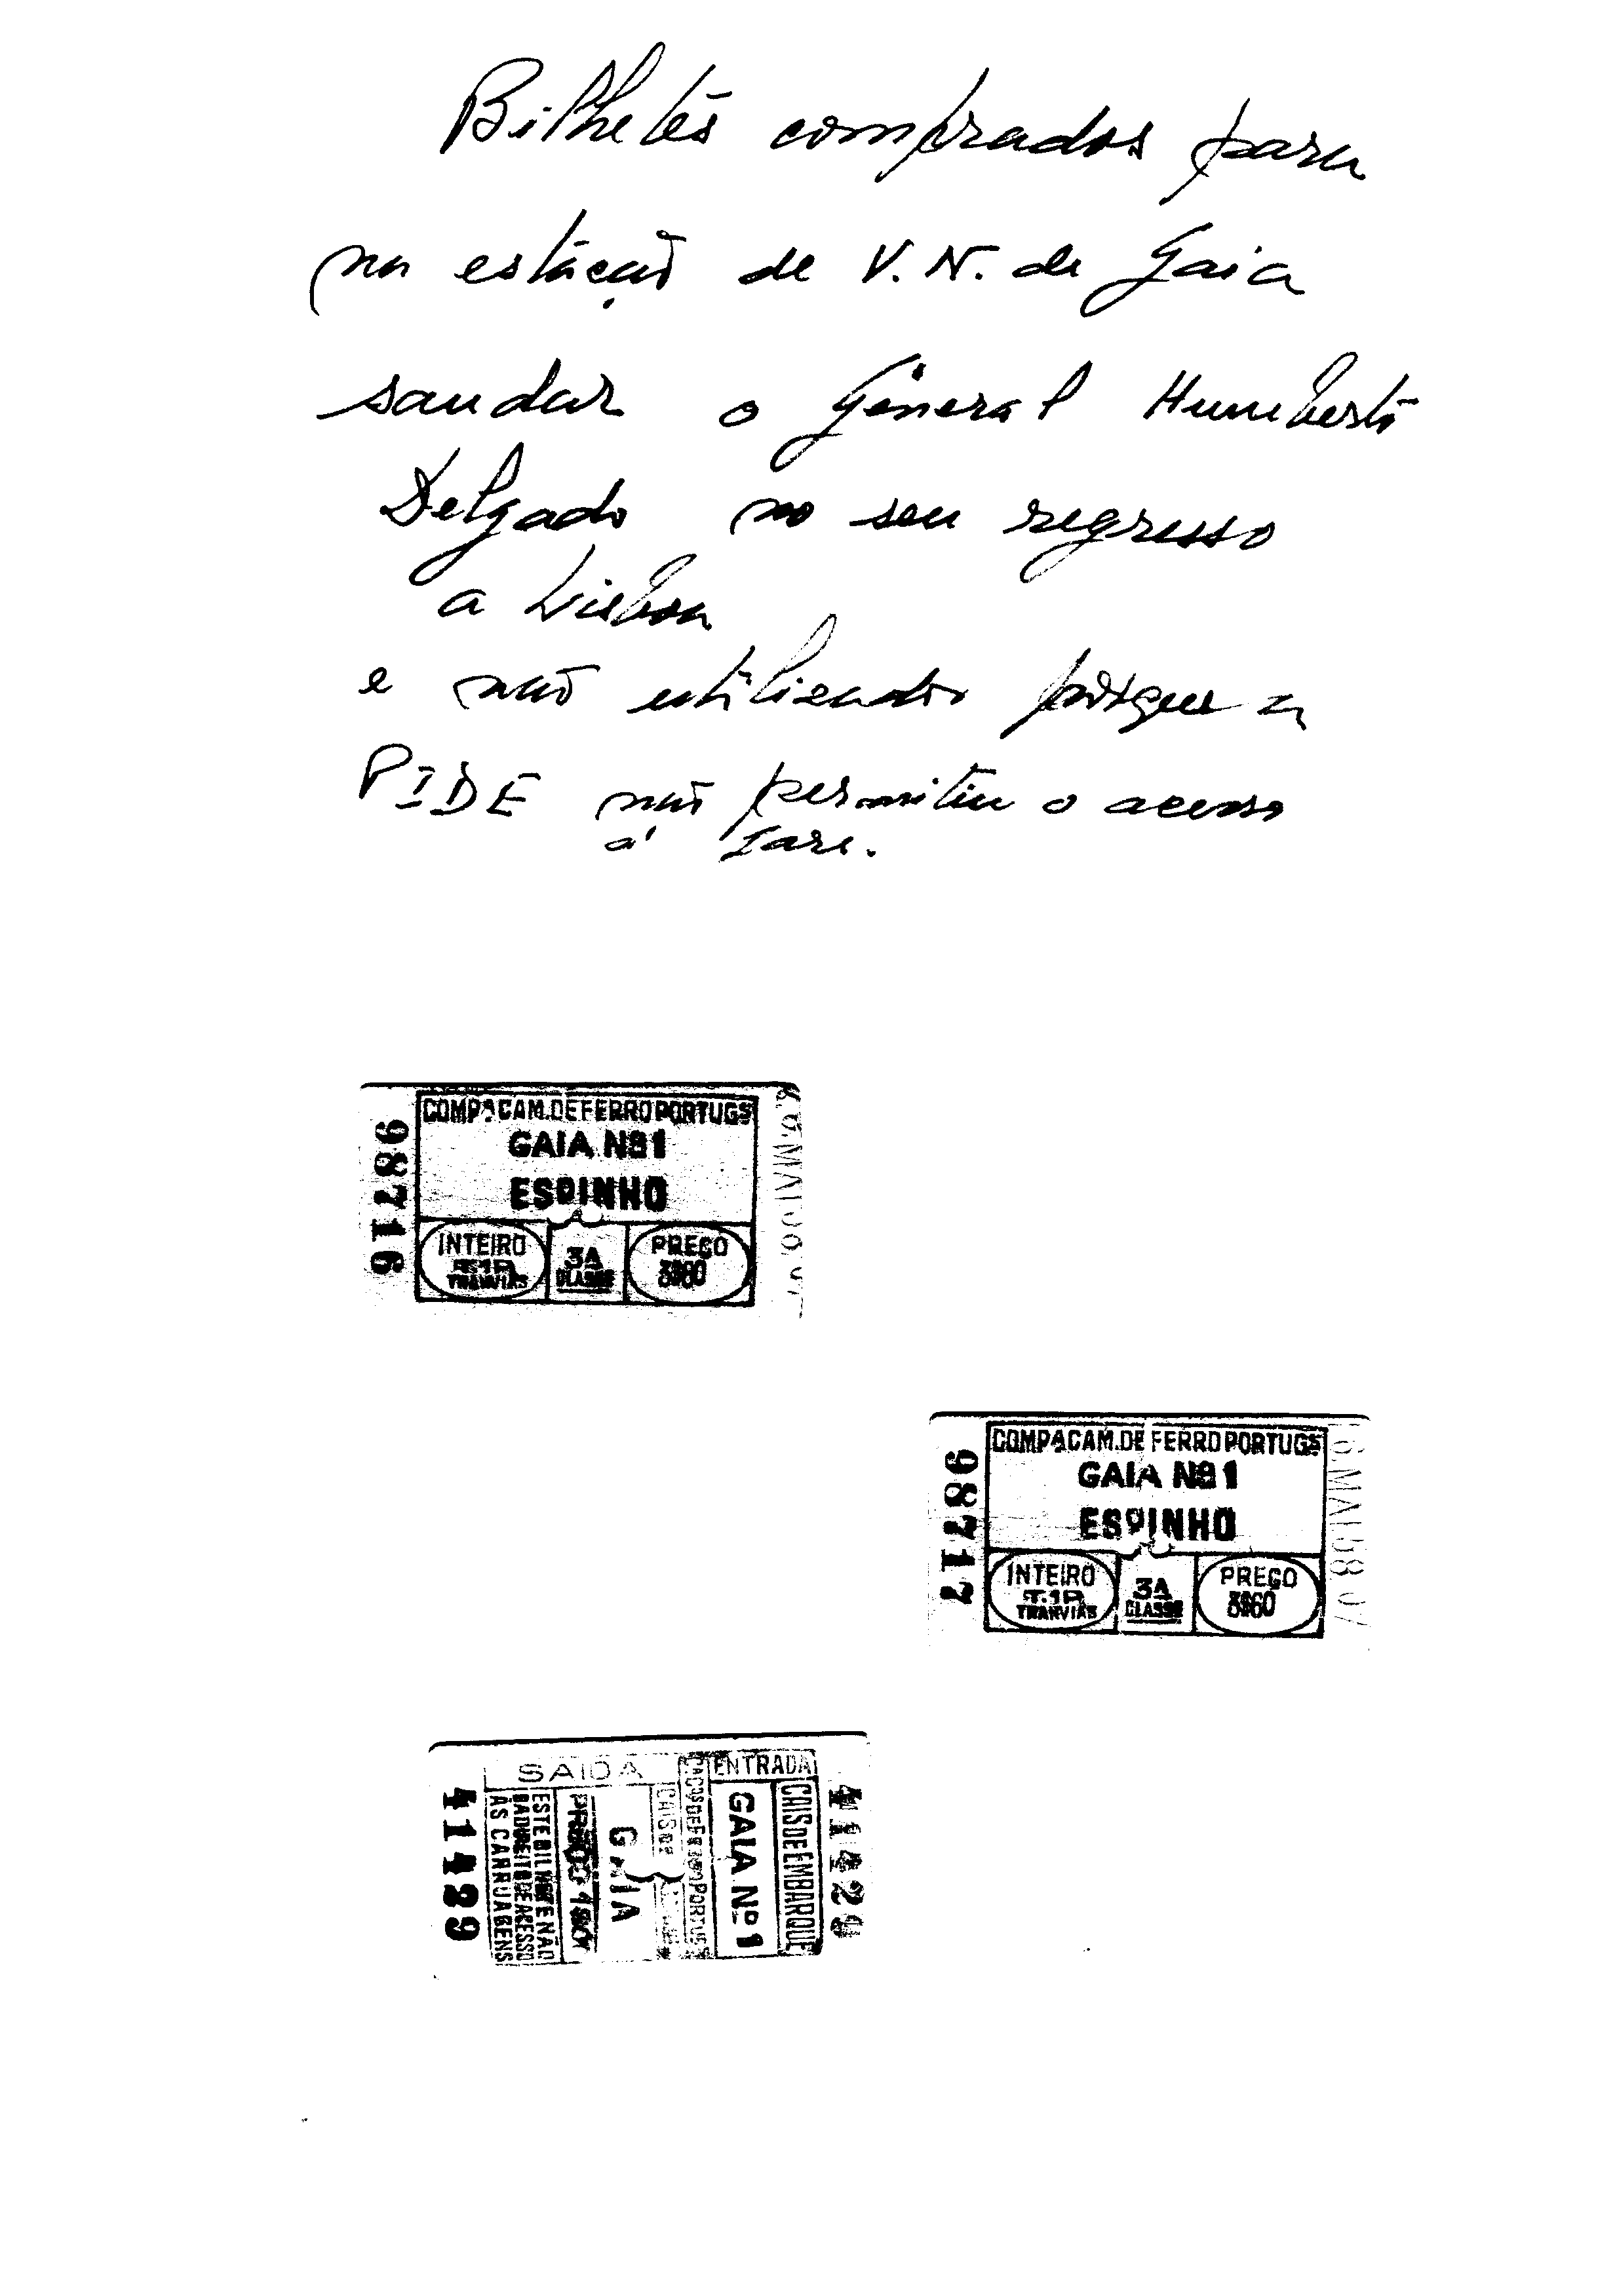 Bilhetes comprados para
na estação de V. N. de Gaia
saudar o General Humberto
Delgado no seu regresso
a Lisboa
e não utilizados porque a
PIDE não permitiu o acesso
à gare.
98716
COMPª CAM. DE FERRO PORTUGS
GAIA Nº 1
ESPINHO
INTEIRO
TRANVIAS
3ª
CLASSE
PREÇO
3$60
98717
COMPª CAM. DE FERRO PORTUGS
GAIA Nº 1
ESPINHO
INTEIRO
TRANVIAS
3ª
CLASSE
PREÇO
3$60
MAI 58
SAIDA
ENTRADA
CAIS DE EMBARQUE
GAIA Nº 1
GAIA
PREÇO
ESTE BILHETE NÃO
DA DIREITO DE ACESSO
ÀS CARRUAGENS
41429
41429